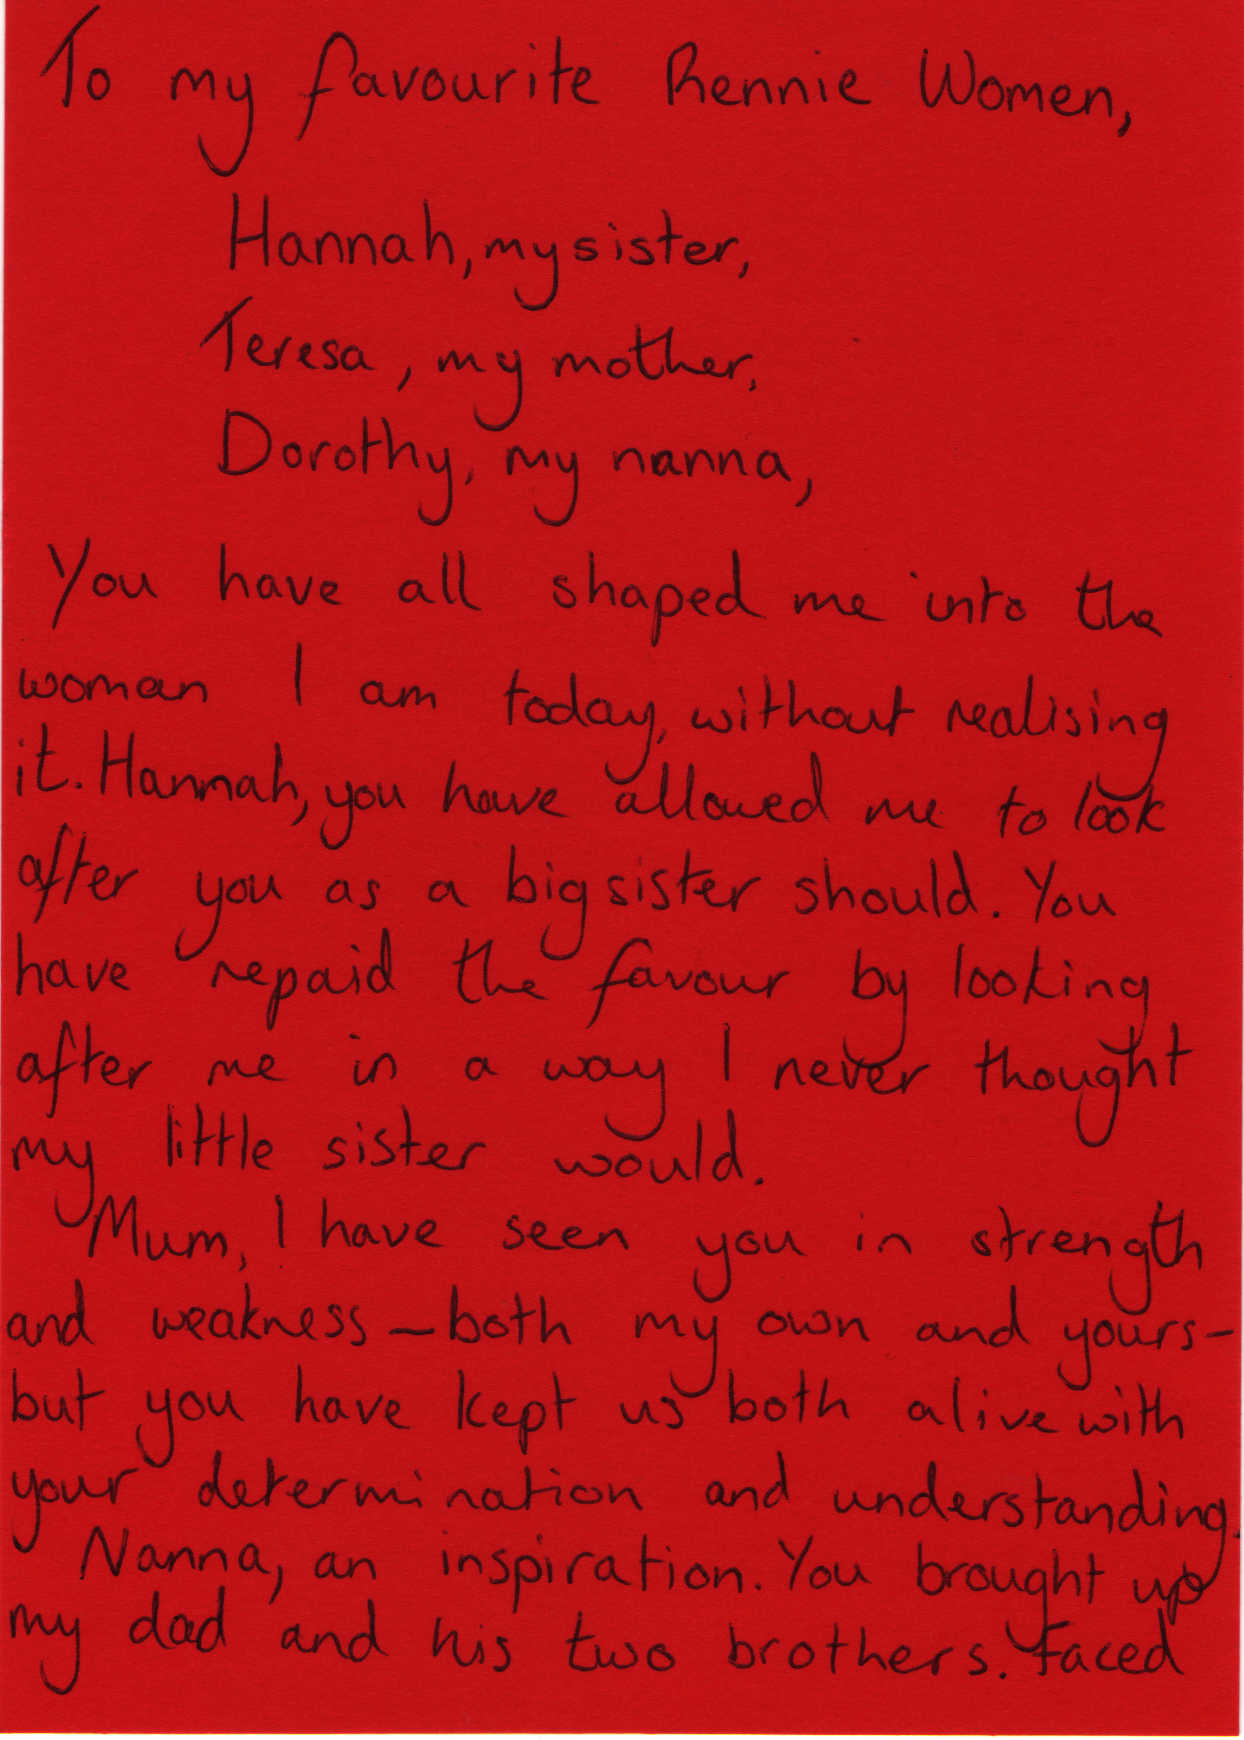 To my favourite Rennie Women,
Hannah, my sister,
Teresa, my mother,
Dorothy, my nanna,
You have all shaped me into the
woman I am today, without realising
it. Hannah, you have allowed me to look
after you as a big sister should. You
have repaid the favour by looking
after me in a way I never thought
my little sister would.
Mum, I have seen you in strength
and weakness - both my own and yours -
but you have kept us both alive with
your determination and understanding.
Nanna, an inspiration. You brought up
my dad and his two brothers. Faced